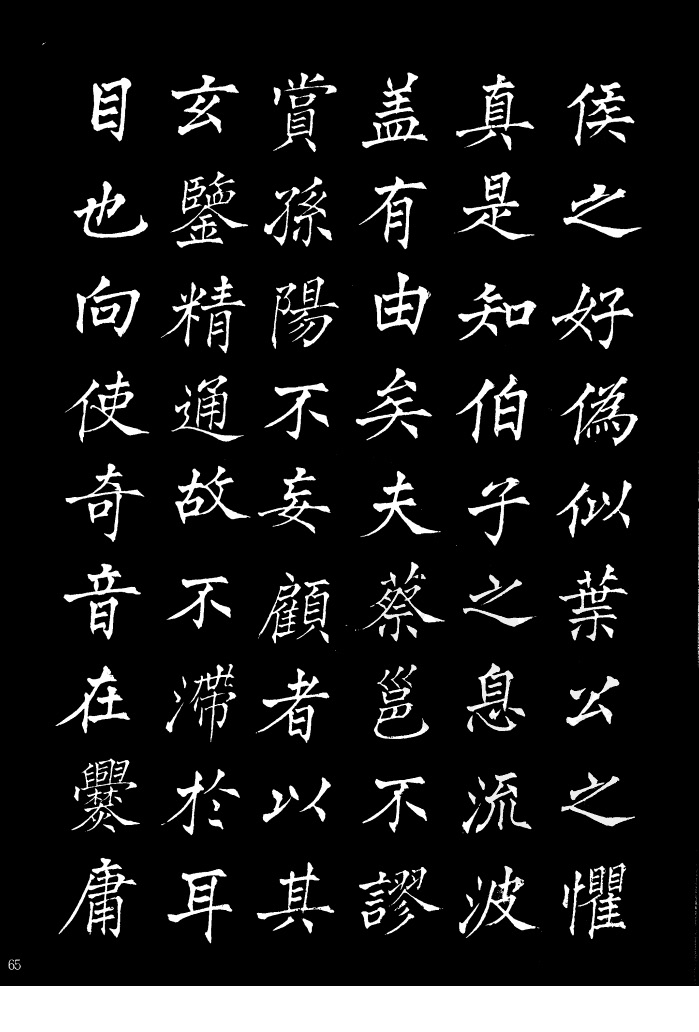 侯之好偽似葉公之懼
真是知伯子之息流波
盖有由矣夫蔡邕不謬
賞孫陽不妄顧者以其
玄鑒精通故不滯於耳
目也向使奇音在爨庸
65